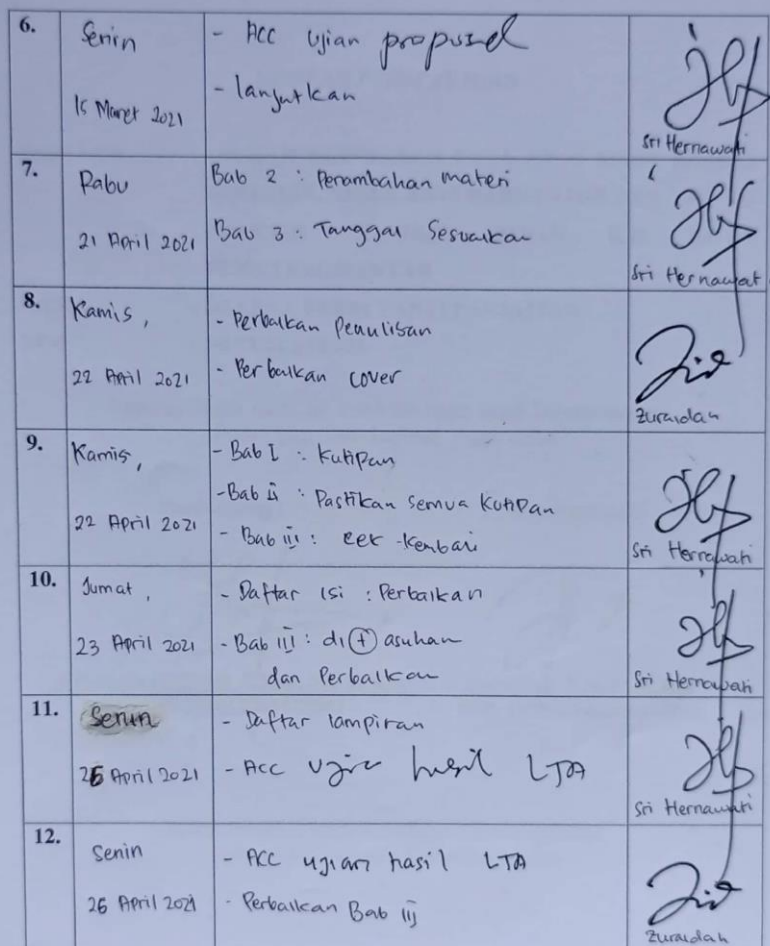 6.
Senin
15 Maret 2021
- ACC ujian proposal
- lanjutkan
Sri Hernawati
7.
Rabu
21 April 2021
Bab 2 : Penambahan materi
Bab 3 : Tanggal Sesuaikan
Sri Hernawati
8.
Kamis,
22 April 2021
- Perbaikan Penulisan
- Perbaikan cover
Zuraidah
9.
Kamis,
22 April 2021
- Bab I : Kutipan
- Bab ii : Pastikan semua Kutipan
- Bab iii : cek kembali
Sri Hernawati
10.
Jumat,
23 April 2021
- Daftar isi : Perbaikan
- Bab iii : di + asuhan
dan Perbaikan
Sri Hernawati
11.
Senin
26 April 2021
- Daftar lampiran
- Acc ujian hasil LTA
Sri Hernawati
12.
Senin
26 April 2021
- ACC ujian hasil LTA
- Perbaikan Bab iij
Zuraidah